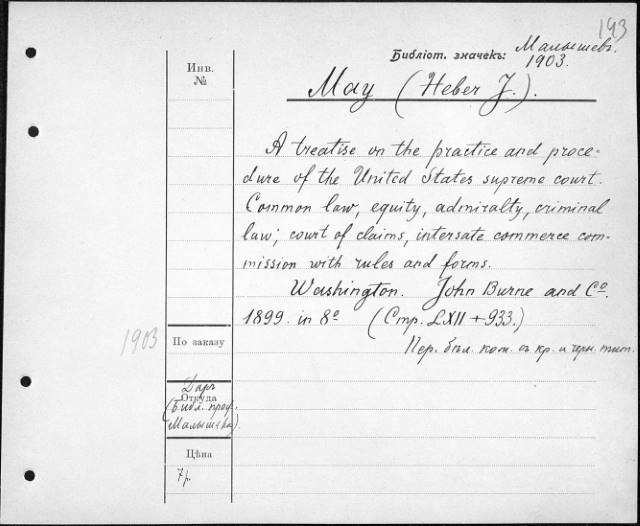 193
Библіот. значекъ: Малышевъ.
1903.
Инв.
№
May (Heber J.).
A treatise on the practice and proce-
dure of the United States supreme court.
Common law, equity, admiralty, criminal
law; court of claims, intersate commerce com-
mission with rules and forms.
Washington. John Burne and Cº.
1899. in 8º (Стр. LXII + 933.)
Пер. бѣл. кож. съ кр. и черн. тит.
1903
По заказу
Даръ
Откуда
(Библ. проф.
Малышева).
Цѣна
7р.